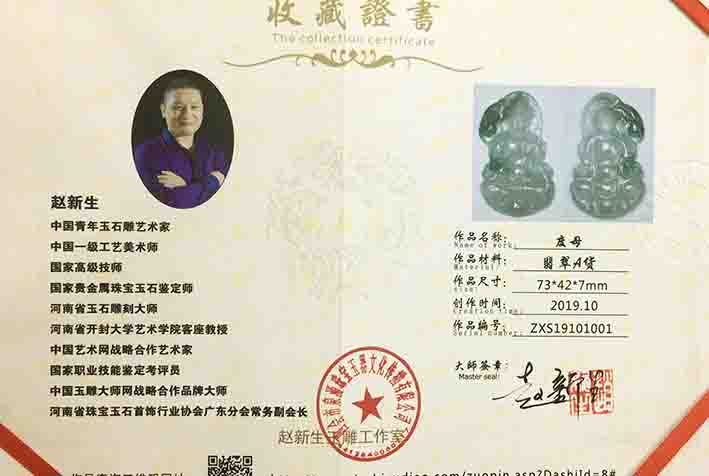 收藏證書
The collection certificate
赵新生
中国青年玉石雕艺术家
中国一级工艺美术师
国家高级技师
国家贵金属珠宝玉石鉴定师
河南省玉石雕刻大师
河南省开封大学艺术学院客座教授
中国艺术网战略合作艺术家
国家职业技能鉴定考评员
中国玉雕大师网战略合作品牌大师
河南省珠宝玉石首饰行业协会广东分会常务副会长
作品名称: 度母
Name of work:
作品材料: 翡翠A货
Material:
作品尺寸: 73*42*7mm
Size:
创作时间: 2019.10
Creation time:
作品编号: ZXS19101001
大师签章:
Master seal:
赵新生玉雕工作室